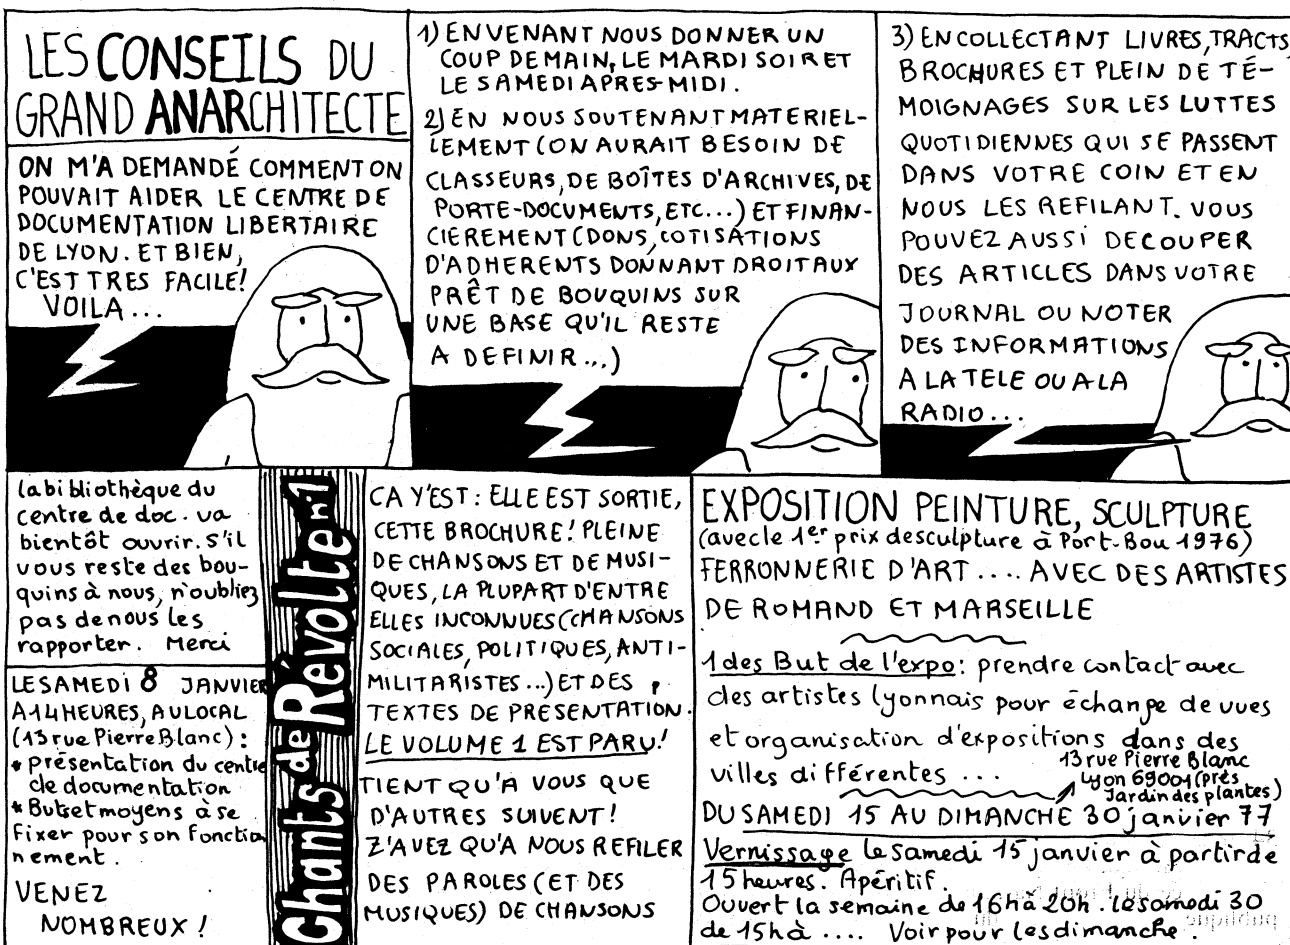 LES CONSEILS DU
GRAND ANARCHITECTE
ON M'A DEMANDÉ COMMENT ON
POUVAIT AIDER LE CENTRE DE
DOCUMENTATION LIBERTAIRE
DE LYON. ET BIEN,
C'EST TRES FACILE!
VOILA...
1) EN VENANT NOUS DONNER UN
COUP DE MAIN, LE MARDI SOIR ET
LE SAMEDI APRES-MIDI.
2) EN NOUS SOUTENANT MATERIEL-
LEMENT (ON AURAIT BESOIN DE
CLASSEURS, DE BOÎTES D'ARCHIVES, DE
PORTE-DOCUMENTS, ETC...) ET FINAN-
CIEREMENT (DONS, COTISATIONS
D'ADHERENTS DONNANT DROIT AUX
PRÊT DE BOUQUINS SUR
UNE BASE QU'IL RESTE
A DEFINIR...)
3) EN COLLECTANT LIVRES, TRACTS,
BROCHURES ET PLEIN DE TÉ-
MOIGNAGES SUR LES LUTTES
QUOTIDIENNES QUI SE PASSENT
DANS VOTRE COIN ET EN
NOUS LES REFILANT. VOUS
POUVEZ AUSSI DECOUPER
DES ARTICLES DANS VOTRE
JOURNAL OU NOTER
DES INFORMATIONS
A LA TELE OU A LA
RADIO...
la bibliothèque du
centre de doc. va
bientôt ouvrir. S'il
vous reste des bou-
quins à nous, n'oubliez
pas de nous les
rapporter. Merci
LE SAMEDI 8 JANVIER
A 14 HEURES, AU LOCAL
(13 rue Pierre Blanc) :
* présentation du centre
de documentation
* Buts et moyens à se
fixer pour son fonction
nement.
VENEZ
NOMBREUX !
Chants de Révolte n°1
CA Y'EST : ELLE EST SORTIE,
CETTE BROCHURE! PLEINE
DE CHANSONS ET DE MUSI-
QUES, LA PLUPART D'ENTRE
ELLES INCONNUES (CHANSONS
SOCIALES, POLITIQUES, ANTI-
MILITARISTES...) ET DES
TEXTES DE PRÉSENTATION.
LE VOLUME 1 EST PARU!
TIENT QU'A VOUS QUE
D'AUTRES SUIVENT!
Z'AVEZ QU'A NOUS REFILER
DES PAROLES (ET DES
MUSIQUES) DE CHANSONS
EXPOSITION PEINTURE, SCULPTURE
(avec le 1er prix de sculpture à Port-Bou 1976)
FERRONNERIE D'ART .... AVEC DES ARTISTES
DE ROMAND ET MARSEILLE
1 des But de l'expo : prendre contact avec
des artistes lyonnais pour échange de vues
et organisation d'expositions dans des
villes différentes ...
13 rue Pierre Blanc
Lyon 69001 (près
Jardin des plantes)
DU SAMEDI 15 AU DIMANCHE 30 janvier 77
Vernissage le Samedi 15 janvier à partir de
15 heures. Apéritif.
Ouvert la semaine de 16h à 20h. le samedi 30
de 15h à .... Voir pour les dimanche.